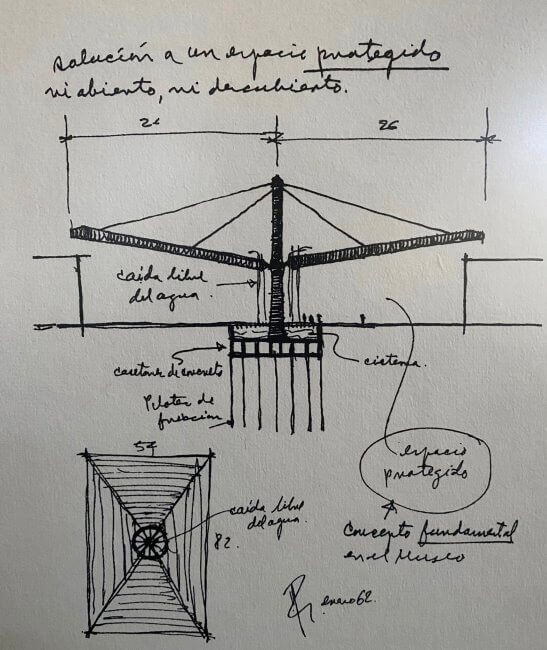 solución a un espacio protegido
ni abierto, ni descubierto.
26
26
caída libre
del agua.
cisterna.
Pilotes de
espacio
protegido
Concepto fundamental
en el Museo
54
caída libre
del agua.
82.
enero 62.